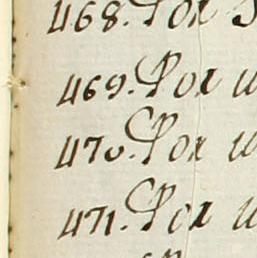 468. Por
469. Por u
470. Por u
471. Por u